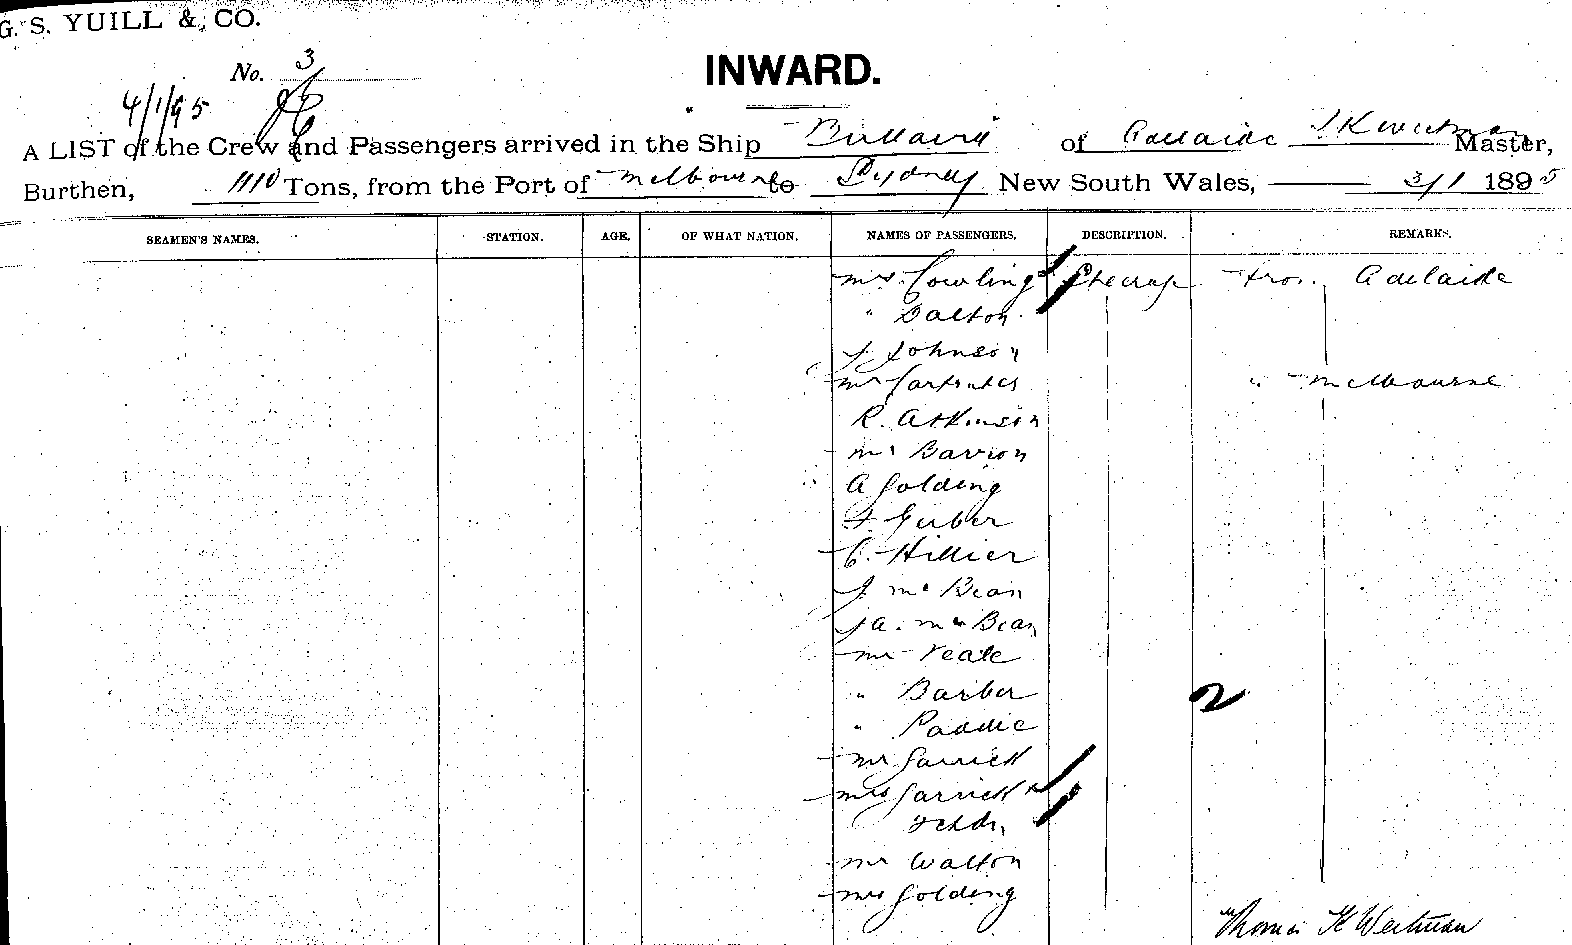 G. S. YUILL & CO.
No. 3
INWARD.
4/1/95
A LIST of the Crew and Passengers arrived in the Ship of Adelaide Master,
Burthen, 1110 Tons, from the Port of Melbourne to Sydney New South Wales, 3/1 1895
SEAMEN'S NAMES. STATION. AGE. OF WHAT NATION. NAMES OF PASSENGERS. DESCRIPTION. REMARKS.
Mrs. Cowling Steerage from Adelaide
" Dalton
J Johnson
Mr " Melbourne
R. Atkinson
Mr Barron
A Golding
Gerber
C. Hillier
J. Mc Bean
J A. Mc Bean
Mr Veale
" Barber 2
" Paddie
Mr Garrick
Mrs Garrick &
Mr Walton
Mrs Golding
Thomas K Weetman